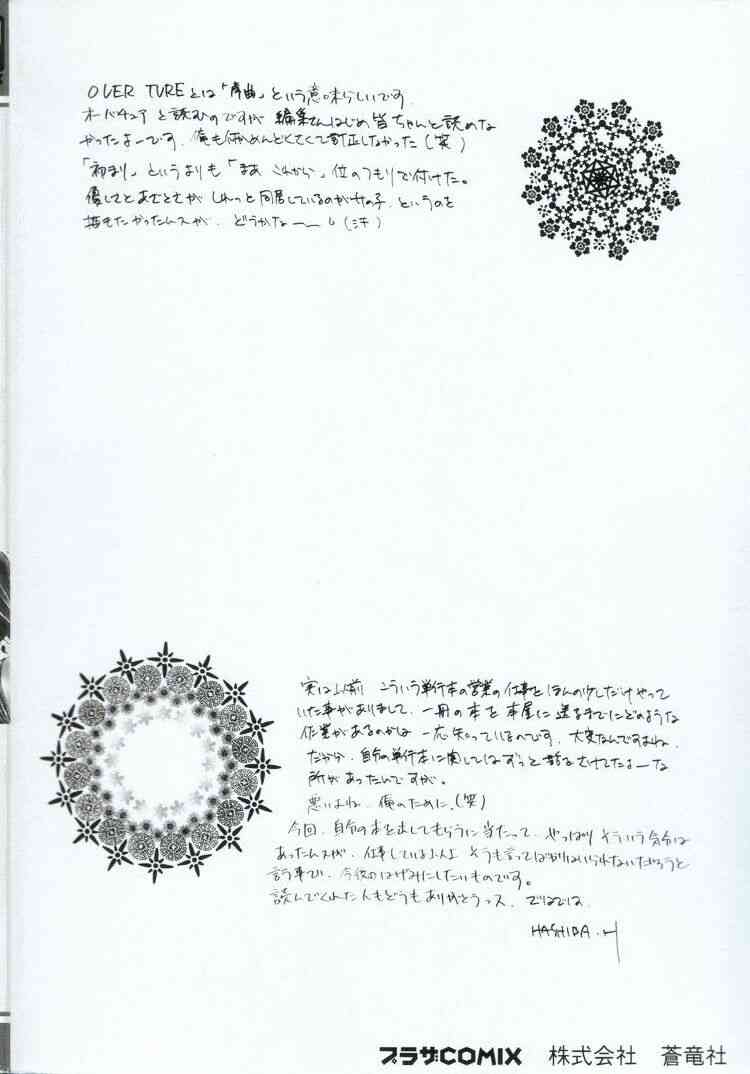 OVER TUREとは「序曲」という意味らしいです。
オーバチュアと読むのですが編集さんはじめ皆ちゃんと読めな
かったよーです。俺も何かめんどくさくて訂正しなかった(笑)
「初まり」というよりも「まあ これから」位のつもりで付けた。
優しさと が しれっと同居しているのが女の子、というのを
描きたかったんスが、どうかなーーし(汗)
実は以前 こういう単行本の営業の仕事をほんの少しだけやって
いた事がありまして、一冊の本を本屋に送るまでにどのような
作業があるのかは 一応知っているのです。大変なんですよね。
だから、自分の単行本に関してはずっと避けてたよーな
所があったんですが。
悪いよね、俺のために。(笑)
今回、自分の本を出してもらうに当たって、やっぱりそういう気分は
あったんスが、仕事している以上 そうも言ってばかりはいられないだろうと
言う事で、今後のはげみにしたいものです。
読んでくれた人もどうもありがとうっス。ではでは。
HASHIBA.H
プラザCOMIX 株式会社 蒼竜社